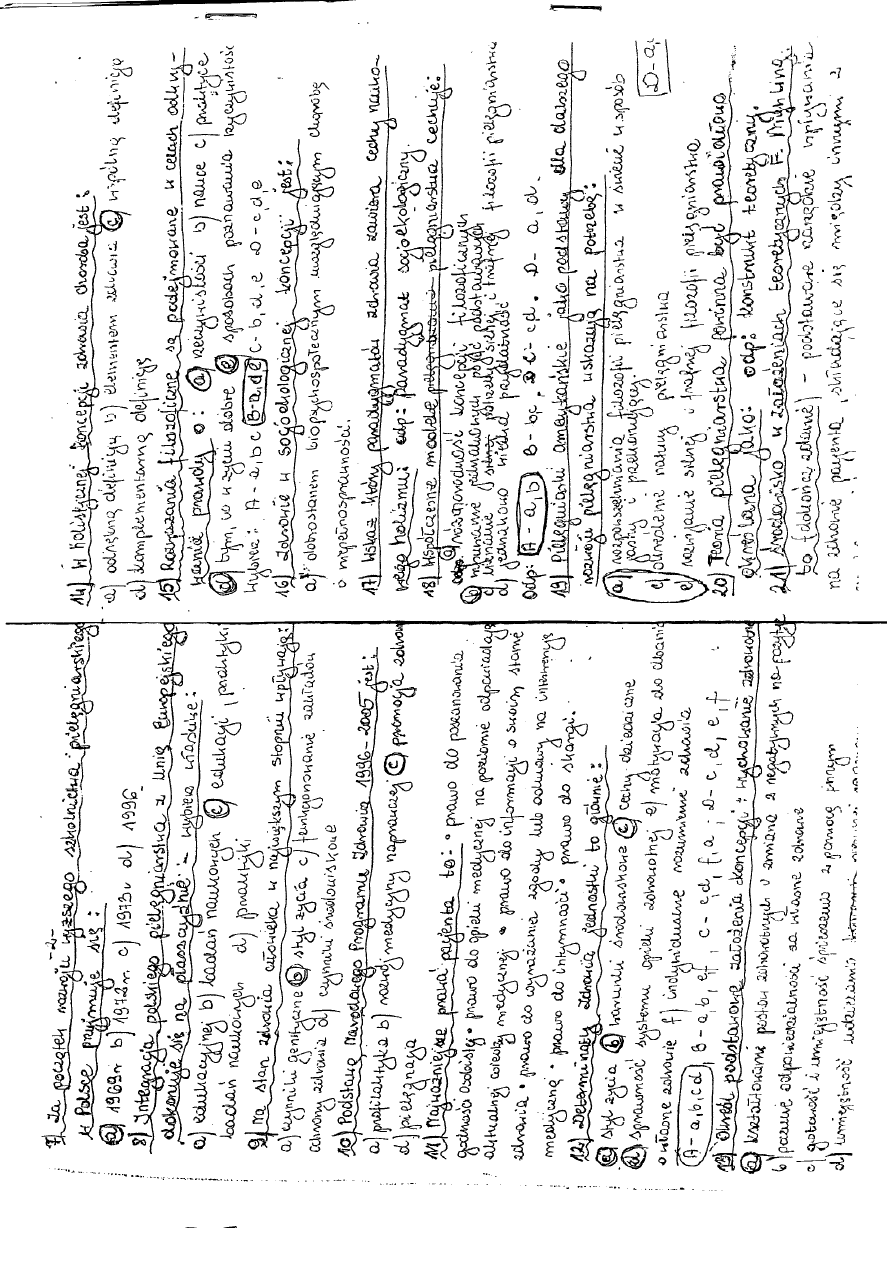 -2-
7. Za początek rozwoju wyższego szkolnictwa pielęgniarskiego
w Polsce przyjmuje się:
a) 1969r b) 1972r c) 1973r d) 1996
8) Integracja polskiego pielęgniarstwa z Unią Europejskiego
dokonuje się na płaszczyźnie - wybierz właściwe:
a) edukacyjnej b) badań naukowych c) edukacji, praktyki
badań naukowych d) praktyki
9) Na stan zdrowia człowieka w największym stopniu wpływają:
a) czynniki genetyczne b) styl życia c) funkcjonowanie zakładów
ochrony zdrowia d) czynniki środowiskowe
10) Podstawą Narodowego Programu Zdrowia 1996-2005 jest:
a) profilaktyka b) rozwój medycyny naprawczej c) promocja zdrow
d) pielęgnacja
11) Najważniejsze prawa pacjenta to: • prawo do poszanowania
godności osobistej • prawo do opieki medycznej na poziomie odpowiadają
aktualnej wiedzy medycznej • prawo do informacji o swoim stanie
zdrowia • prawo do wyrażania zgody lub odmowy na interwencję
medyczną • prawo do intymności • prawo do skargi.
12) Determinanty zdrowia jednostki to głównie:
a) styl życia b) warunki środowiskowe c) cechy dziedziczne
d) sprawność systemu opieki zdrowotnej e) motywacja do dbania
o własne zdrowie f) indywidualne rozumienie zdrowia
A - a,b,c,d, B - a,b,e,f, C - c,d,f,a, D - c,d,e,f
13) Określ podstawowe założenia koncepcji: Wychowanie zdrowotne
a) kształtowanie postaw zdrowotnych i zmiana z negatywnych na pozyty
b) poczucie odpowiedzialności za własne zdrowie
c) gotowość i umiejętność śpieszenia z pomocą innym
d) umiejętność udzielania
14) W holistycznej koncepcji zdrowia choroba jest:
a) odrębną definicją b) elementem zdrowia c) wspólną definicją
d) komplementarną definicją
15) Rozważania filozoficzne są podejmowane w celach odkry-
wania prawdy o: a) rzeczywistości b) nauce c) praktyce
d) tym, co w życiu dobre e) sposobach poznawania rzeczywistości
Wybierz: A - a,b,c B-a,d,e C- b,d,e D - c,d,e
16) Zdrowie w socjoekologicznej koncepcji jest:
a) dobrostanem biopsychospołecznym uwzględniającym chorobę
o niepełnosprawności.
17) Wskaż który paradygmatów zdrowia zawiera cechy nauko-
wego holizmu: odp: paradygmat socjoekologiczny.
18) Współczesne modele pielęgniarstwa cechuje:
a) różnorodność koncepcji filozoficznych
d) jednakowo wielka przydatność
Odp: A - a,b B - b,c C - c,d. D - a,d.
19) Pielęgniarki amerykańskie jako podstawy dla dalszego
rozwoju pielęgniarstwa wskazują na potrzebę:
a) rozpowszechniania filozofii pielęgniarstwa w świecie w sposób
jasny i przekonujący.
c) określenie natury pielęgniarstwa
e) rozwijanie silnej i trafnej filozofii pielęgniarstwa
D - a,
20) Teoria pielęgniarstwa powinna być prawidłowo
określana jako: odp: konstrukt teoretyczny.
21) Środowisko w założeniach teoretycznych F. Nighting.
to (dokończ zdanie) - podstawowe narzędzie wpływania
na zdrowie pacjenta, składające się między innymi z